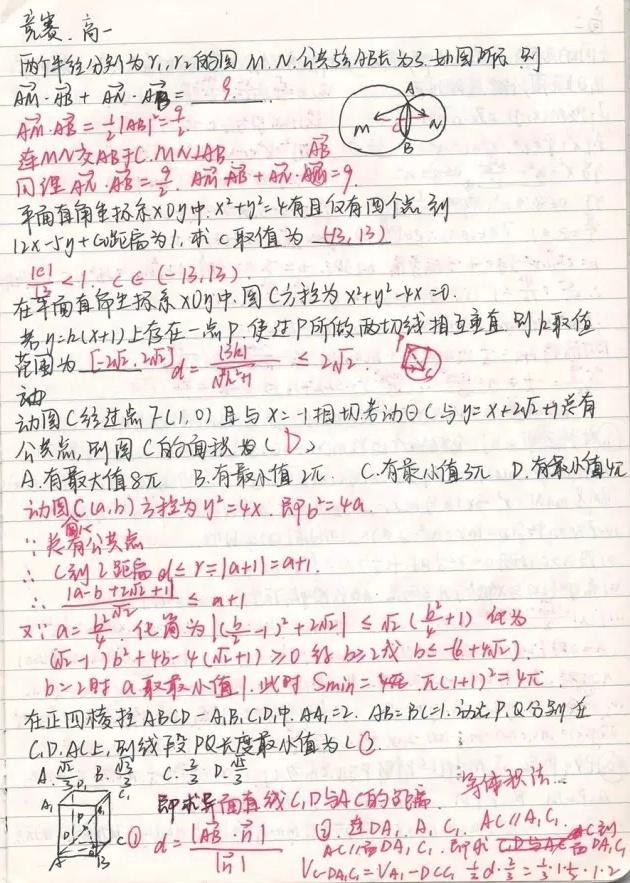 竞赛.高一
两个半径分别为r₁,r₂的圆M.N.公共弦AB长为3.如图所示.则
AM·AB + AN·AB = 9.
AM·AB = ½|AB|² = 9/2.
连MN交AB于C.MN⊥AB
同理 AN·AB = 9/2. AM·AB + AN·AB = 9.
A
M
C
N
B
平面直角坐标系xOy中.x²+y²=4有且仅有四个点到
12x-5y+c=0距离为1.求c取值为 (-13,13)
|c|/13 < 1. c∈(-13,13)
在平面直角坐标系xOy中.圆C方程为x²+y²-4x=0.
若y=k(x+1)上存在一点P.使过P所做两切线相互垂直.则k取值
范围为 [-2√2,2√2] d=|3k|/√(k²+1) ≤ 2√2
P
C
动圆C经过点F(1,0)且与x=-1相切.若动⊙C与y=x+2√2+1总有
公共点,则圆C的面积为( D )
A.有最大值8π B.有最小值2π. C.有最小值3π D.有最小值4π
动圆C(a,b)方程为y²=4x.即b²=4a.
∵总有公共点
∴C到l距离d≤r=|a+1|=a+1.
∴|a-b+2√2+1|/√2 ≤ a+1
又∵a=b²/4. 化简为|(b/2-1)²+2√2| ≤ √2(b²/4+1) 化为
(√2-1)b²+4b-4(√2+1)≥0 得b≥2或b≤-(6+4√2).
b=2时a取最小值1.此时Smin=π(1+1)²=4π
在正四棱柱ABCD-A₁B₁C₁D₁中.AA₁=2. AB=BC=1.动点P.Q分别在
C₁D.AC上,则线段PQ长度最小值为( C ).
A.√2/3 B.√3/3 C.2/3 D.√5/3
等体积法
即求异面直线C₁D与AC的距离.
① d=|AB·n|/|n|
② 连DA₁.A₁C₁. AC∥A₁C₁.
AC∥面DA₁C₁.即求AC到面DA₁C₁
V C-DA₁C₁=V A₁-DCC₁ ⅓d·3/2=⅓·1·½·1·2